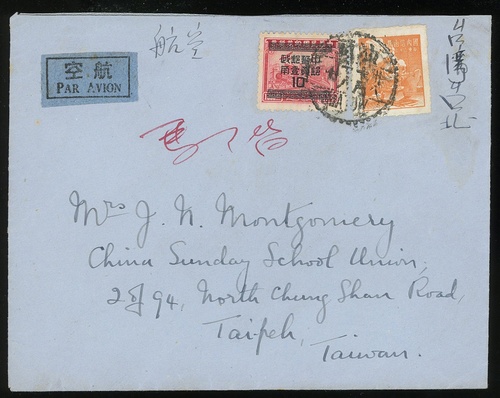 航空
空航
PAR AVION
10
台灣台北
Mrs J. N. Montgomery
China Sunday School Union,
94, North Chung Shan Road,
Taipeh,
Taiwan.